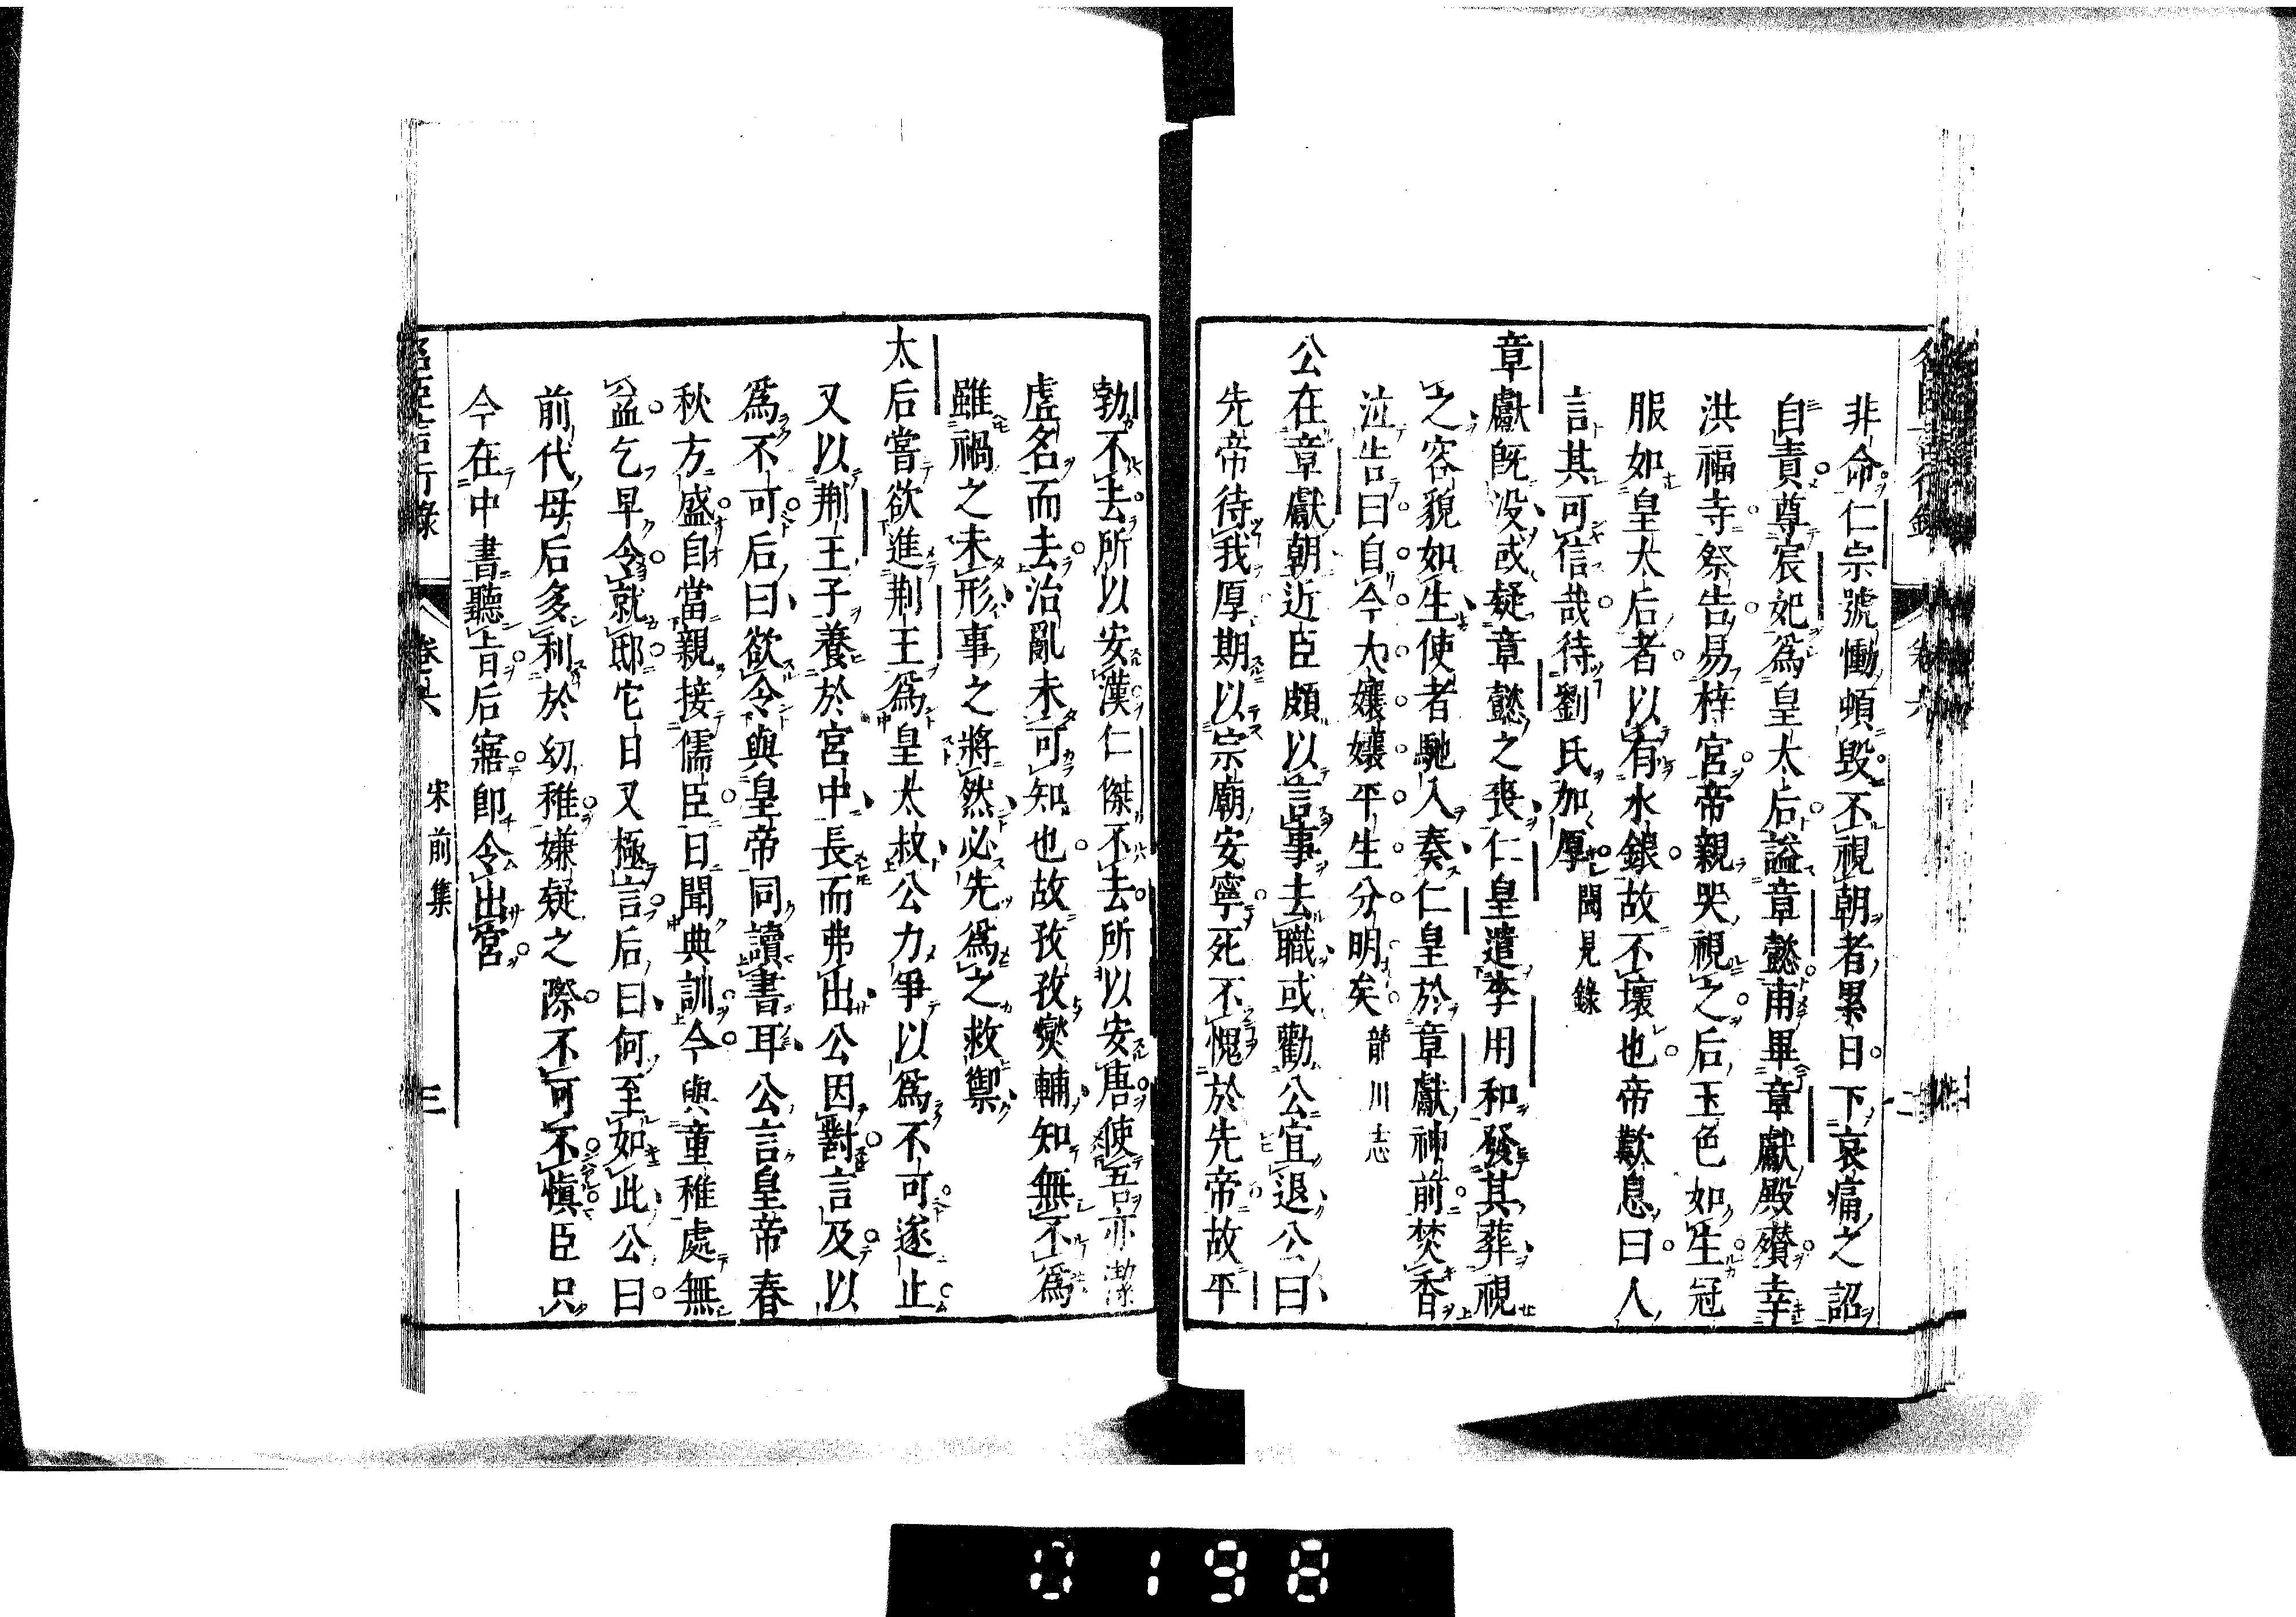 非命仁宗號慟頓毀不視朝者累日下哀痛之詔
自責尊宸妃爲皇太后謚章懿甫畢章獻殿殯幸
洪福寺祭告易梓宮帝親哭視之后玉色如生冠
服如皇太后者以有水銀故不壞也帝歎息曰人
言其可信哉待劉氏加厚 聞見錄
章獻旣没或疑章懿之喪仁皇遣李用和發其葬視
之容貌如生使者馳入奏仁皇於章獻神前焚香
泣告曰自今大孃孃平生分明矣 龍川志
公在章獻朝近臣頗以言事去職或勸公宜退公曰
先帝待我厚期以宗廟安寧死不愧於先帝故平
勃不去所以安漢仁傑不去所以安唐使吾亦潔
虛名而去治亂未可知也故孜孜爕輔知無不爲
雖禍之未形事之將然必先爲之救禦
太后嘗欲進荆王爲皇太叔公力爭以爲不可遂止
又以荆王子養於宮中長而弗出公因對言及以
爲不可后曰欲令與皇帝同讀書耳公言皇帝春
秋方盛自當親接儒臣日聞典訓今與童稚處無
益乞早令就邸它日又極言后曰何至如此公曰
前代母后多利於幼稚嫌疑之際不可不愼臣只
今在中書聽旨后寤卽令出宮
名臣言行錄 卷六 宋前集 三
0198